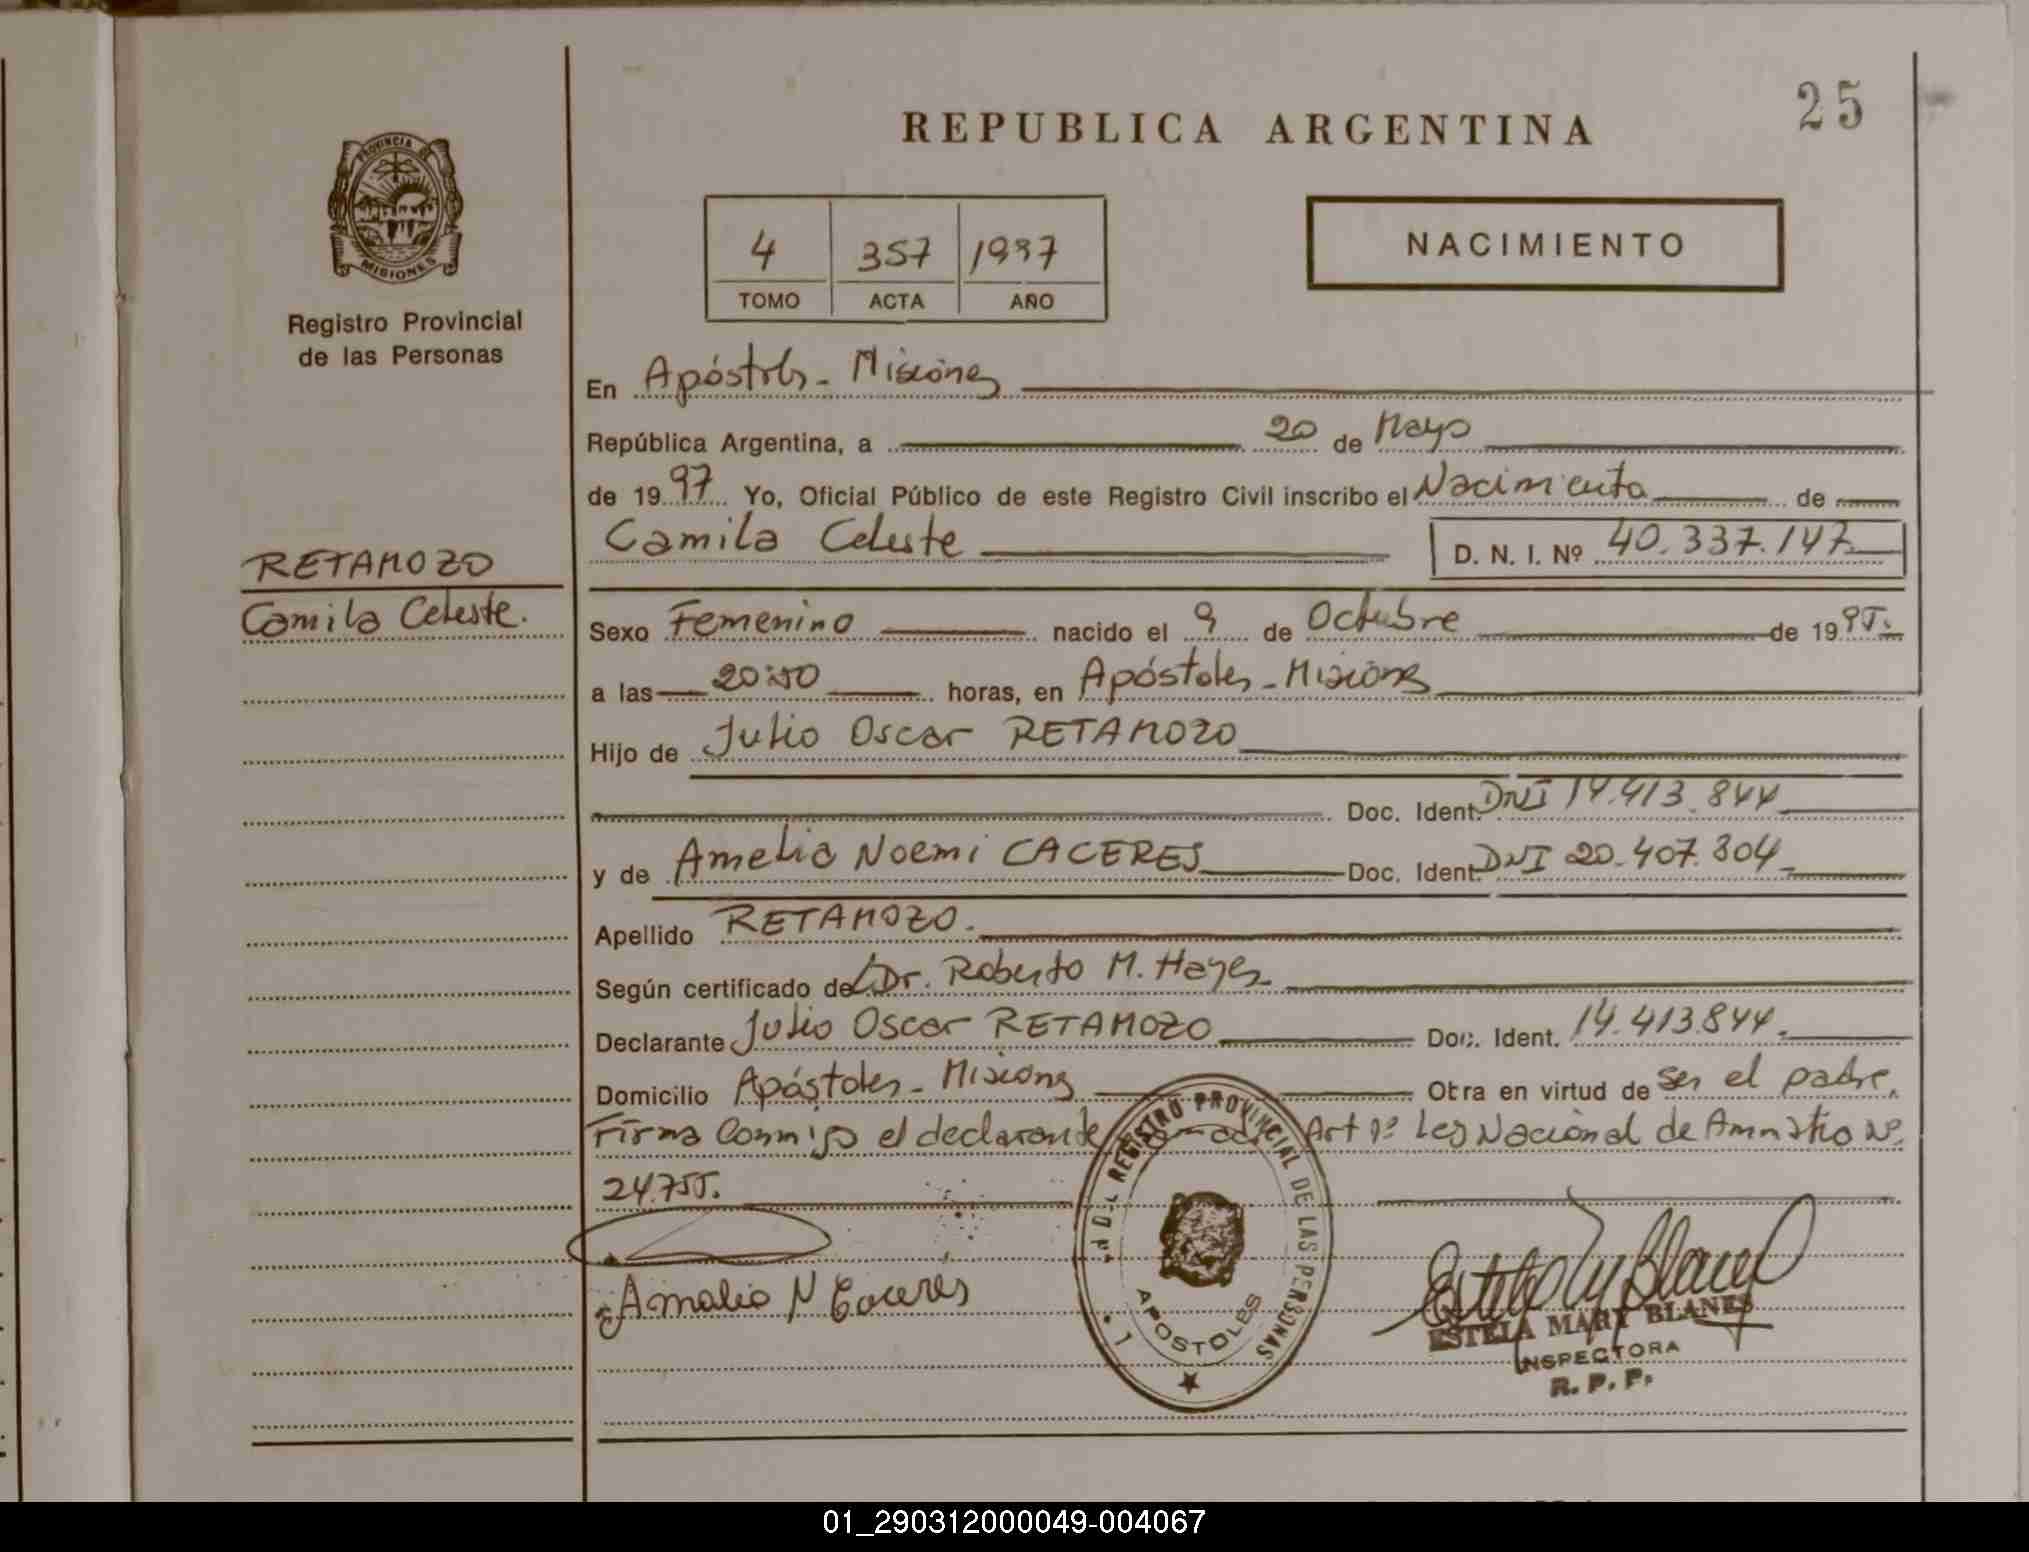 25
REPUBLICA ARGENTINA
PROVINCIA DE
MISIONES
Registro Provincial
de las Personas
4 357 1997
TOMO ACTA AÑO
NACIMIENTO
En Apóstoles - Misiones
República Argentina, a 20 de Mayo
de 1997 Yo, Oficial Público de este Registro Civil inscribo el Nacimiento de
Camila Celeste D. N. I. Nº 40.337.147
RETAMOZO
Camila Celeste.
Sexo Femenino nacido el 9 de Octubre de 1995.
a las 20:50 horas, en Apóstoles - Misiones
Hijo de Julio Oscar RETAMOZO
Doc. Ident. DNI 14.413.844
y de Amelia Noemi CACERES Doc. Ident. DNI 20.407.304
Apellido RETAMOZO.
Según certificado del Dr. Roberto M. Hayes
Declarante Julio Oscar RETAMOZO Doc. Ident. 14.413.844.
Domicilio Apóstoles - Misiones Obra en virtud de ser el padre.
Firma Conmigo el declarante Art 1º Ley Nacional de Amnistia Nº
24.755.
Amalia N Caceres
REGISTRO PROVINCIAL DE LAS PERSONAS
APOSTOLES
ESTELA MARY BLANES
INSPECTORA
R. P. P.
01_290312000049-004067